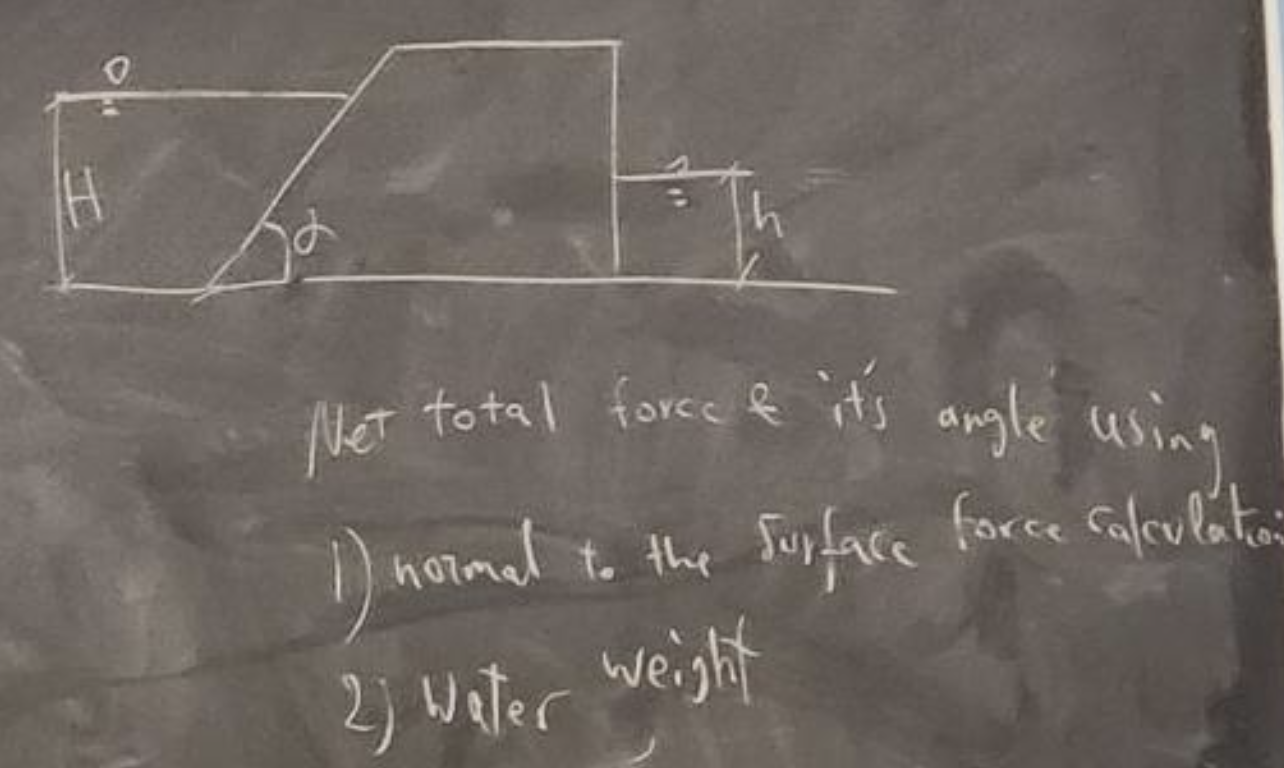 H
α
h
Net total force & it's angle using
1) normal to the surface force calculation
2) Water weight